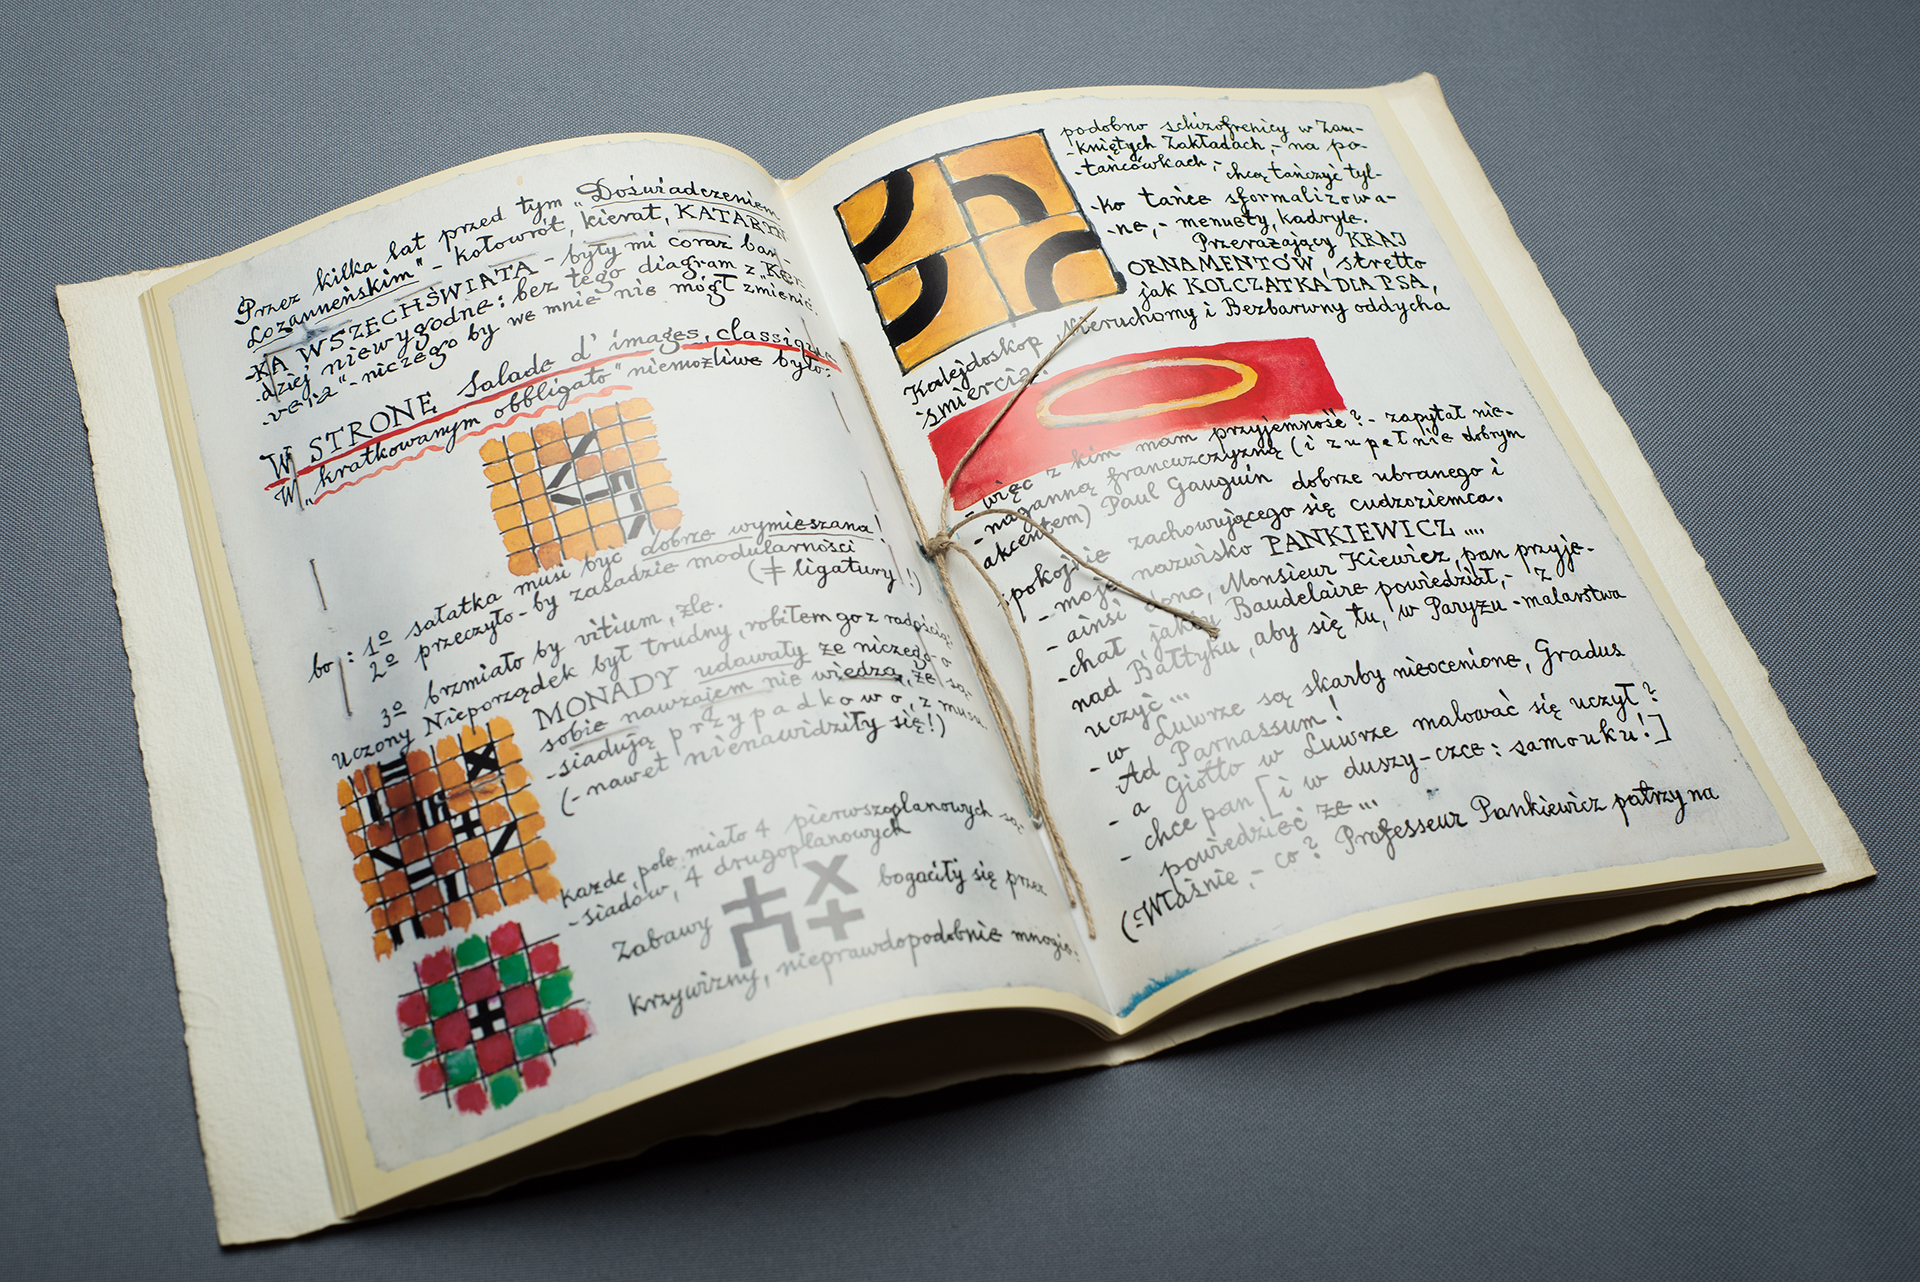 Przez kilka lat przed tym „Doświadczeniem
Lozanneńskim" - kołowrót, kierat, KATARYN
-KA WSZECHŚWIATA - były mi coraz bar-
-dziej niewygodne: bez tego diagram z „Ker
-veria" - niczego by we mnie nie mógł zmienić.
W STRONĘ Salade d'images, classique
W „kratkowanym obbligato" niemożliwe było:
bo: 1º sałatka musi być dobrze wymieszana!
2º przeczyło - by zasadzie modularności
(≠ ligatury!)
3º brzmiało by vitium, źle.
Uczony Nieporządek był trudny, robiłem go z radością
MONADY udawały że niczego o
sobie nawzajem nie wiedzą, że są-
-siadują przypadkowo, z musu
(- nawet nienawidziły się!)
Każde pole miało 4 pierwszoplanowych są-
-siadów, 4 drugoplanowych
Zabawy bogaciły się przez
krzywizny, nieprawdopodobnie mnogie.
podobno schizofrenicy w Zam-
-kniętych Zakładach, - na po-
-tańcówkach, - chcą tańczyć tyl-
-ko tańce sformalizowa-
-ne, - menuety, kadryle.
Przerażający KRAJ
ORNAMENTÓW, stretto
jak KOLCZATKA DLA PSA,
Kalejdoskop, Nieruchomy i Bezbarwny oddycha
śmiercią.
- więc z kim mam przyjemność? - zapytał nie-
-naganną francuzczyzną (i zupełnie dobrym
akcentem) Paul Gauguin dobrze ubranego i
spokojnie zachowującego się cudzoziemca.
- moje nazwisko PANKIEWICZ ....
- ainsi donc, Monsieur Kiewicz, pan przyje-
-chał jak Baudelaire powiedział, - z
nad Bałtyku, aby się tu, w Paryżu - malarstwa
uczyć ...
- w Luwrze są skarby nieocenione, Gradus
Ad Parnassum!
- a Giotto w Luwrze malować się uczył?
- chce pan [i w duszy-czce: samouku!]
powiedzieć że ...
(- Właśnie, - co? Professeur Pankiewicz patrzy na